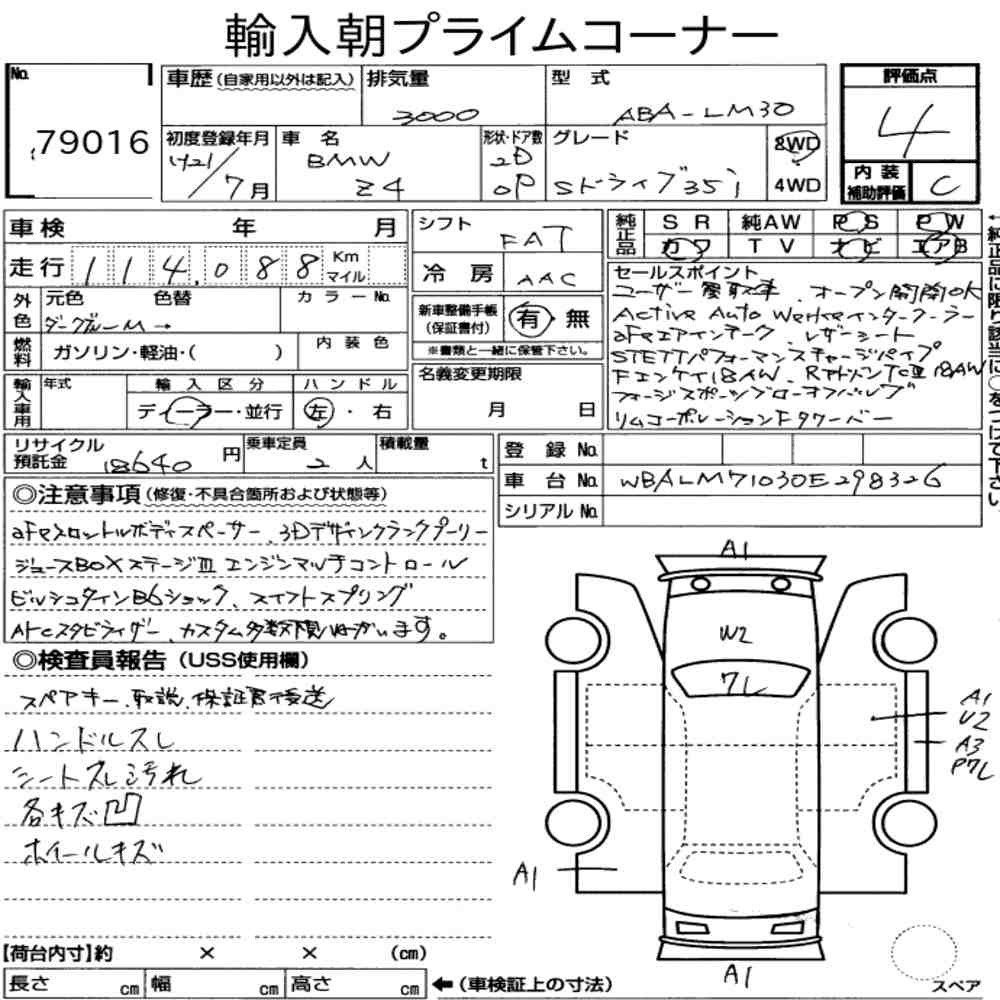 輸入朝プライムコーナー
No. 79016
車歴(自家用以外は記入)
排気量 3000
型 式 ABA-LM30
評価点 4
初度登録年月 H21/7月
車 名 BMW Z4
形状・ドア数 2D OP
グレード Sドライブ35i
2WD
4WD
内装補助評価 C
車検 年 月
シフト FAT
純正品 SR 純AW PS PW
カワ TV ナビ エアB
走行 114,088 Km マイル
冷房 AAC
セールスポイント
ユーザー買取車、オープン開閉OK
外色 元色 色替 カラーNo.
ダークグルーM→
Active Auto Werkeインタークーラー
新車整備手帳(保証書付) 有・無
aFeエアインテーク、レザーシート
燃料 ガソリン・軽油・( ) 内装色
※書類と一緒に保管下さい。
STETTパフォーマンスチャージパイプ
Fエンケイ18AW、 18AW
輸入車用 年式 輸入区分 ハンドル
名義変更期限
フォージスポーツブローオフバルブ
ディーラー・並行 左・右
月 日
リムコーポレーションFタワーバー
←純正品に限り該当に○をつけて下さい。
リサイクル預託金 18640円
乗車定員 2人
積載量 t
登録No.
車台No. WBALM71030E298326
シリアルNo.
◎注意事項(修復・不具合箇所および状態等)
aFeスロットルボディスペーサー、3Dデザインクランクプーリー
ジュースBOXステージⅢ エンジンマルチコントロール
ビルシュタインB6ショック、スイフトスプリング
ARCスタビライザー、カスタム多数 願います。
◎検査員報告(USS使用欄)
スペアキー、取説、保証書後送
ハンドルスレ
シートスレ汚れ
各キズ凹
ホイールキズ
A1
W2
ワレ
A1
U2
A3
P7L
A1
A1
【荷台内寸】約 × × (cm)
長さ cm 幅 cm 高さ cm ←(車検証上の寸法)
スペア